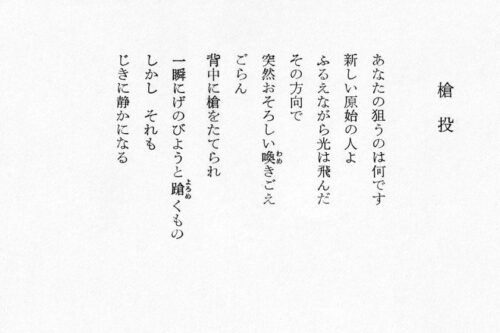 槍投
あなたの狙うのは何です
新しい原始の人よ
ふるえながら光は飛んだ
その方向で
突然おそろしい喚きごえ
ごらん
背中に槍をたてられ
一瞬にげのびようと蹌くもの
しかし　それも
じきに静かになる